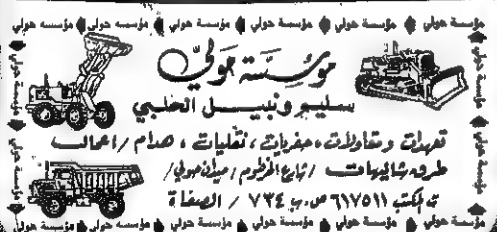 مؤسسة حولي مؤسسة حولي مؤسسة حولي مؤسسة حولي مؤسسة حولي مؤسسة حولي
مؤسسة حولي
سليم ونبيل الحلبي
تعهدات ومقاولات، حفريات، نقليات، هدام / اعمال
طرق شاليهات / شارع الخرطوم / ميدان حولي /
ت المكتب ٦١٧٥١١ ص.ب ٧٣٤ / الصفاة
مؤسسة حولي مؤسسة حولي مؤسسة حولي مؤسسة حولي مؤسسة حولي مؤسسة حولي